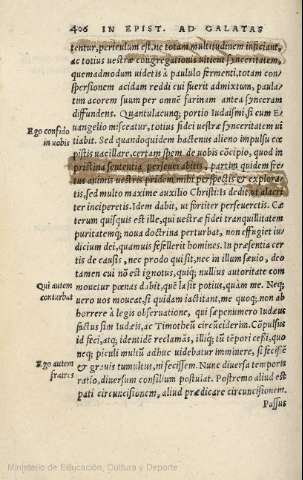 406 IN EPIST. AD GALATAS
tentur, periculum est, ne totam multitudinem inficiant,
ac totius uestræ congregationis uitient synceritatem,
quemadmodum uidetis à paululo fermenti, totam con
spersionem acidam reddi cui fuerit admixtum, paula-
tim acorem suum per omnē farinam antea synceram
diffundens. Quantulacunq; portio Iudaismi, si cum E-
uangelio misceatur, totius fidei uestræ synceritatem ui
tiabit. Sed quandoquidem hactenus alieno impulsu cœ
Ego confido
in uobis
pistis uacillare, certam spem de uobis cōcipio, quod in
pristina sententia perseuerabitis, partim quidem fre
tus animis uestris pridem mihi perspectis & explora-
tis, sed multo maxime auxilio Christi: Is dedit, ut alacri
ter inciperetis. Idem dabit, ut fortiter perseueretis. Cæ
terum quisquis est ille, qui uestræ fidei tranquillitatem
puritatemq; noua doctrina perturbat, non effugiet iu-
dicium dei, quamuis fefellerit homines. In præsentia cer
tis de causis, nec prodo quis sit, nec in illum sæuio, deo
tamen cui nō est ignotus, quiq; nullius autoritate com
Qui autem
conturbat
mouetur pœnas dabit, quē lasit potius, quàm me. Neq;
uero uos moueat, si quidam iactitant, me quoq; non ab
horrere à legis obseruatione, qui sæpenumero Iudæus
factus sim Iudæis, ac Timotheū circūciderim. Cōpulsus
id feci, atq; identidē reclamās, illiq; tū tēpori cessi, quo
neq; piculi multū adhuc uidebatur imminere, si fecissē
Ego autem
fratres
& grauis tumultus, ni fecissem. Nunc diuersa temporis
ratio, diuersum consilium postulat. Postremo aliud est
pati circuncisionem, aliud prædicare circuncisionem.
Passus
Ministerio de Educación, Cultura y Deporte